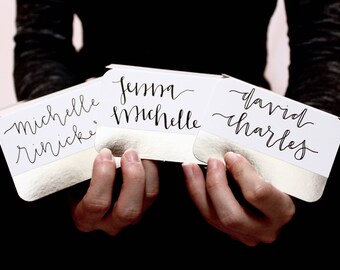 michelle
rinicke
Jenna
Michelle
david
charles